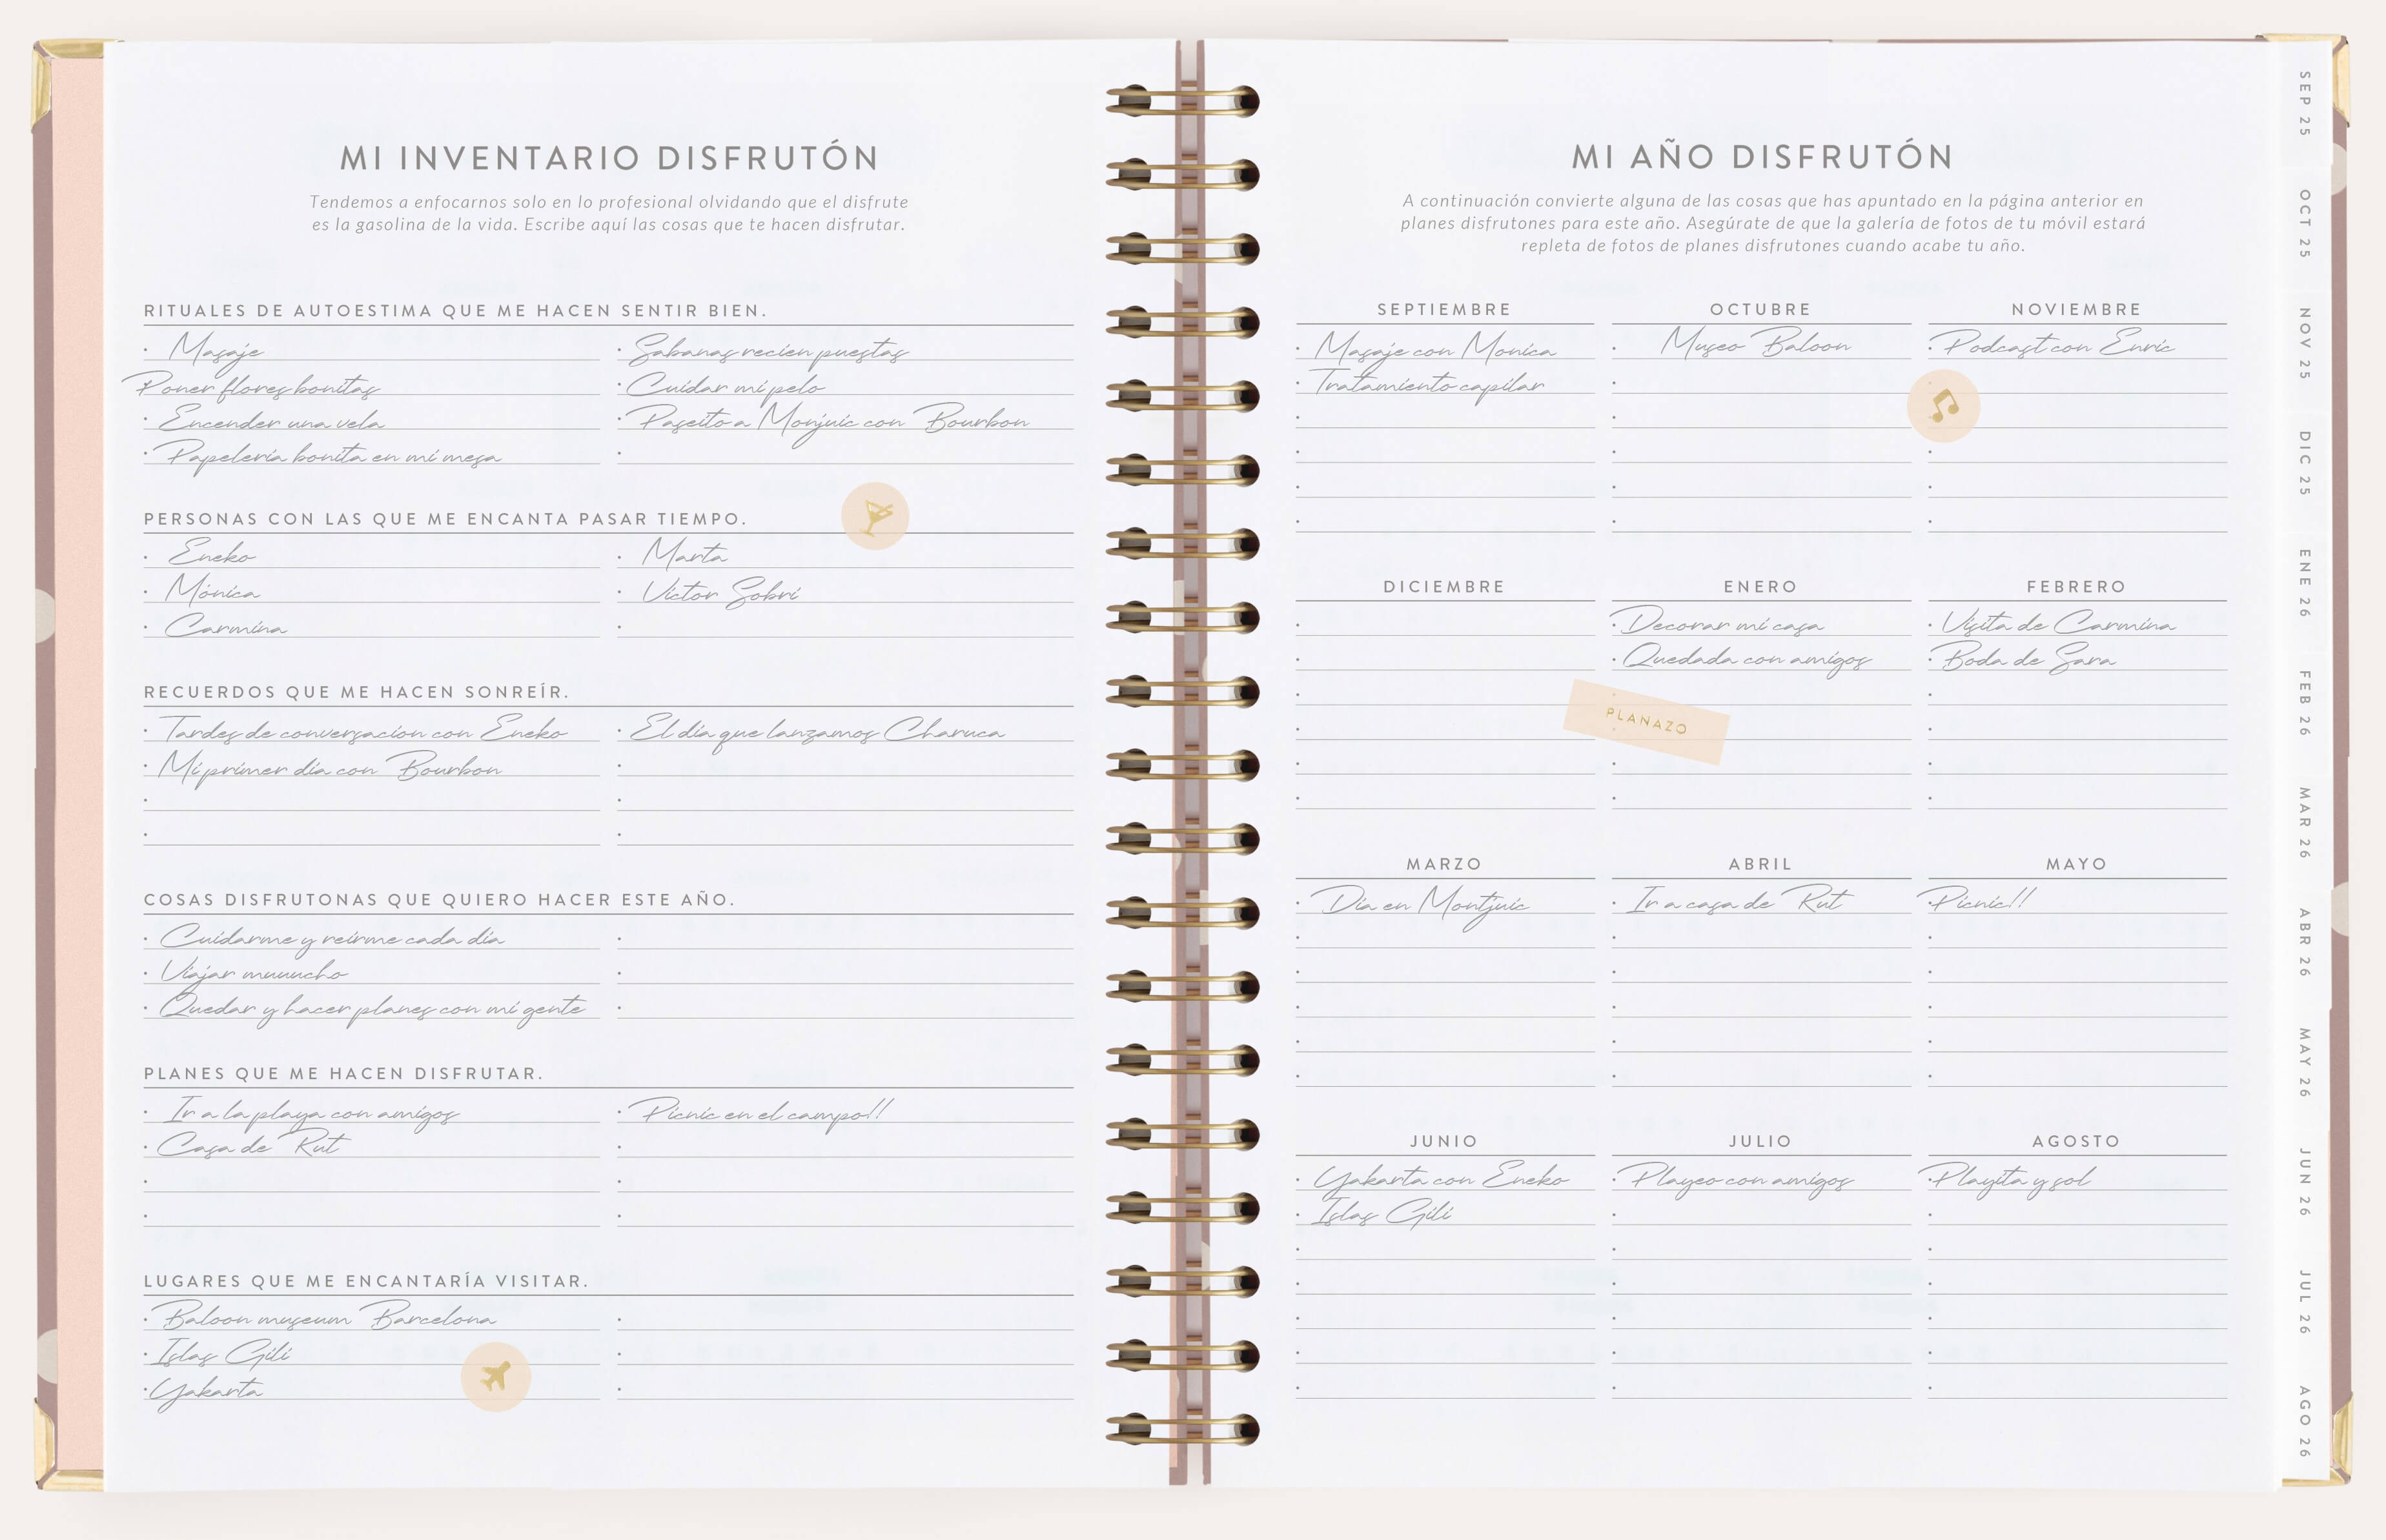 MI INVENTARIO DISFRUTÓN
Tendemos a enfocarnos solo en lo profesional olvidando que el disfrute
es la gasolina de la vida. Escribe aquí las cosas que te hacen disfrutar.
RITUALES DE AUTOESTIMA QUE ME HACEN SENTIR BIEN.
Masaje
Poner flores bonitas
Encender una vela
Papelería bonita en mi mesa
Sabanas recien puestas
Cuidar mi pelo
Paseito a Monjuic con Bourbon
PERSONAS CON LAS QUE ME ENCANTA PASAR TIEMPO.
Eneko
Mónica
Carmina
Marta
Víctor Sobri
RECUERDOS QUE ME HACEN SONREÍR.
Tardes de conversación con Eneko
Mi primer día con Bourbon
El día que lanzamos Charuca
COSAS DISFRUTONAS QUE QUIERO HACER ESTE AÑO.
Cuidarme y reírme cada día
Viajar muuucho
Quedar y hacer planes con mi gente
PLANES QUE ME HACEN DISFRUTAR.
Ir a la playa con amigos
Casa de Rut
Picnic en el campo!!
LUGARES QUE ME ENCANTARÍA VISITAR.
Baloon museum Barcelona
Islas Gili
Yakarta
MI AÑO DISFRUTÓN
A continuación convierte alguna de las cosas que has apuntado en la página anterior en
planes disfrutones para este año. Asegúrate de que la galería de fotos de tu móvil estará
repleta de fotos de planes disfrutones cuando acabe tu año.
SEPTIEMBRE
Masaje con Monica
Tratamiento capilar
OCTUBRE
Museo Baloon
NOVIEMBRE
Podcast con Enric
DICIEMBRE
ENERO
Decorar mi casa
Quedada con amigos
PLANAZO
FEBRERO
Visita de Carmina
Boda de Sara
MARZO
Día en Montjuic
ABRIL
Ir a casa de Rut
MAYO
Picnic!!
JUNIO
Yakarta con Eneko
Islas Gili
JULIO
Playeo con amigos
AGOSTO
Playita y sol
SEP 25
OCT 25
NOV 25
DIC 25
ENE 26
FEB 26
MAR 26
ABR 26
MAY 26
JUN 26
JUL 26
AGO 26